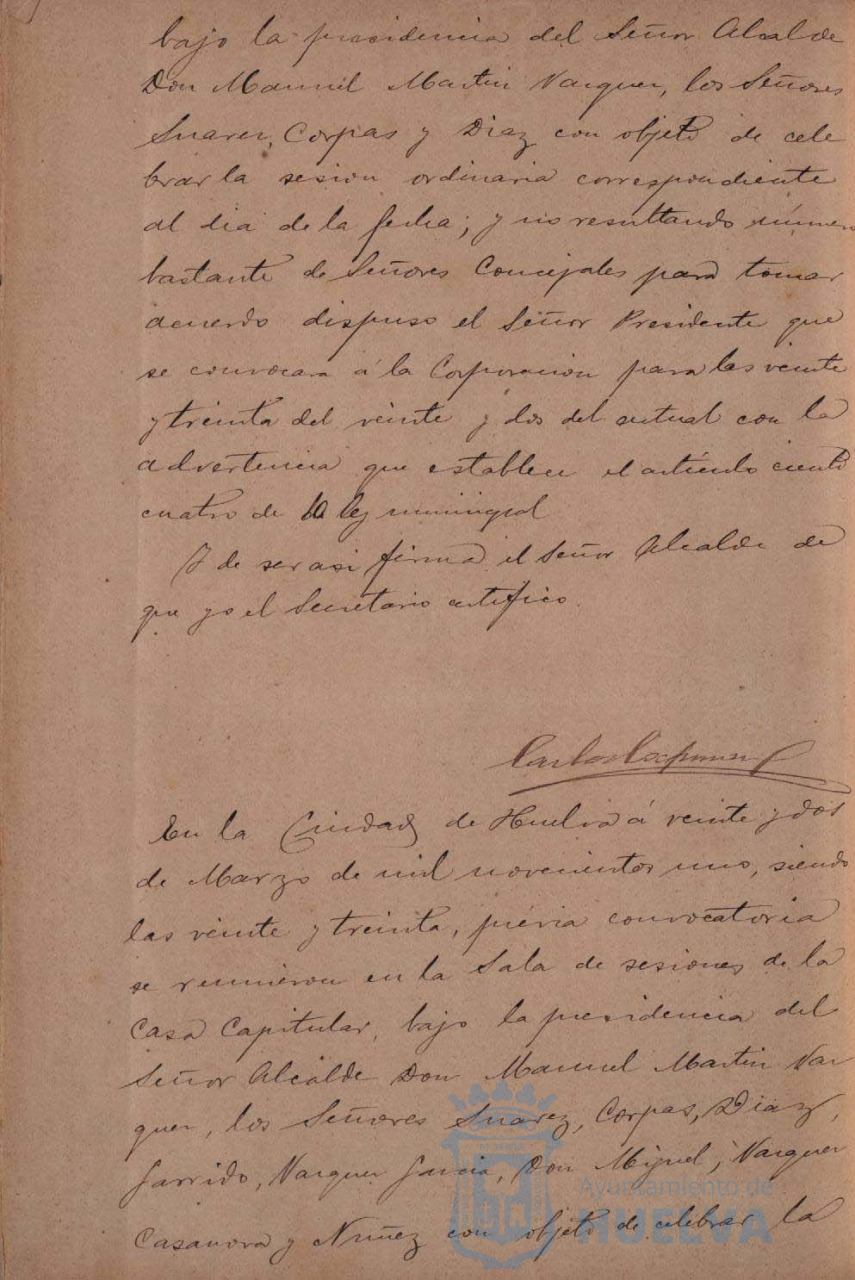 bajo la presidencia del Señor Alcalde
Don Manuel Martin Vazquez, los Señores
Suarez, Corpas y Diaz con objeto de cele
brar la sesion ordinaria correspondiente
al dia de la fecha; y no resultando número
bastante de Señores Concejales para tomar
acuerdo dispuso el Señor Presidente que
se convocara á la Corporacion para las veinte
y treinta del veinte y dos del actual con la
advertencia que establece el artículo ciento
cuatro de la ley municipal
Y de ser asi firma el Señor Alcalde de
que yo el Secretario certifico.
Carlos
En la Ciudad de Huelva á veinte y dos
de Marzo de mil novecientos uno, siendo
las veinte y treinta, prévia convocatoria
se reunieron en la Sala de sesiones de la
Casa Capitular, bajo la presidencia del
Señor Alcalde Don Manuel Martin Vaz
quez, los Señores Suarez, Corpas, Diaz,
Garrido, Vazquez Garcia, Don Miguel, Vazquez
Casanova y Nuñez con objeto de celebrar la
Ayuntamiento de
HUELVA